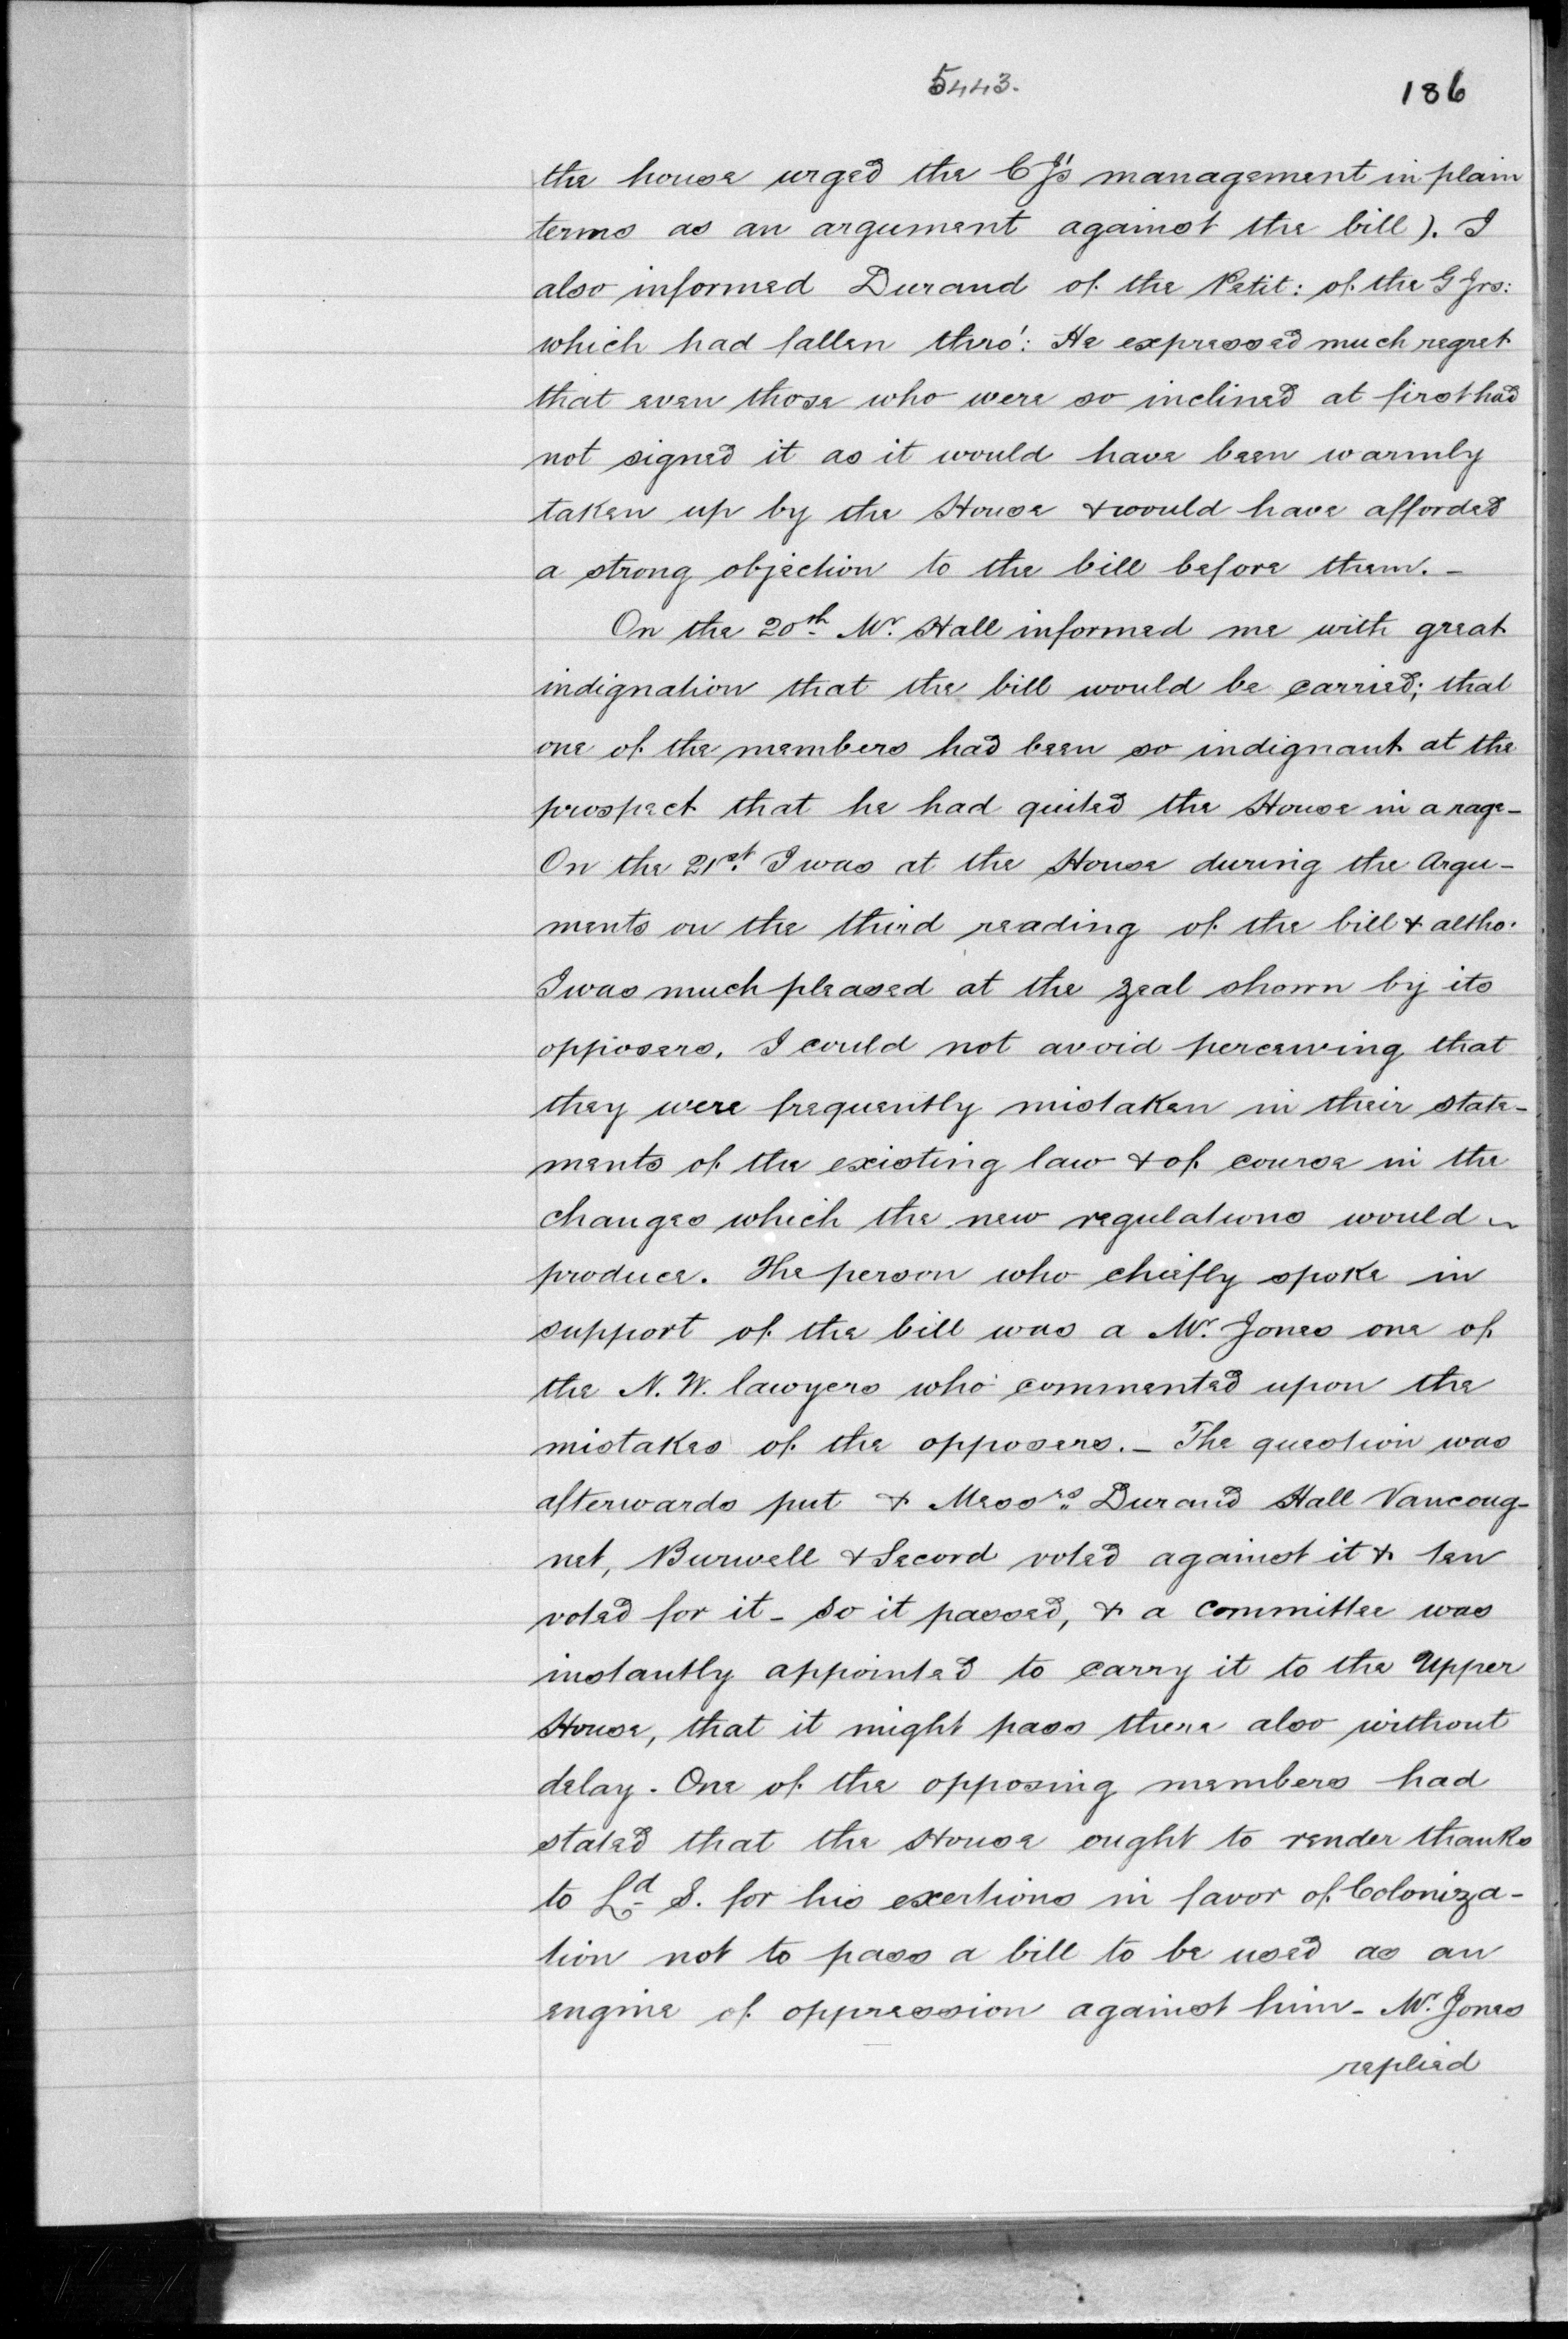 5443.
186
the house urged the CJ's management in plain
terms as an argument against the bill). I
also informed Durand of the Petit: of the G Jrs:
which had fallen thro': He expressed much regret
that even those who were so inclined at first had
not signed it as it would have been warmly
taken up by the House & would have afforded
a strong objection to the bill before them. -
On the 20th Mr. Hall informed me with great
indignation that the bill would be carried; that
one of the members had been so indignant at the
prospect that he had quited the House in a rage -
On the 21st. I was at the House during the Argu-
ments on the third reading of the bill & altho.
I was much pleased at the zeal shown by its
opposers, I could not avoid perceiving that
they were frequently mistaken in their state-
ments of the existing law & of course in the
changes which the new regulations would
produce. The person who chiefly spoke in
support of the bill was a Mr. Jones one of
the N. W. lawyers who commented upon the
mistakes of the opposers. - The question was
afterwards put & Messrs. Durand Hall Vancoug-
net, Burwell & Secord voted against it & ten
voted for it - So it passed, & a Committee was
instantly appointed to carry it to the Upper
House, that it might pass there also without
delay. One of the opposing members had
stated that the House ought to render thanks
to Ld S. for his exertions in favor of Coloniza-
tion not to pass a bill to be used as an
engine of oppression against him - Mr. Jones
replied